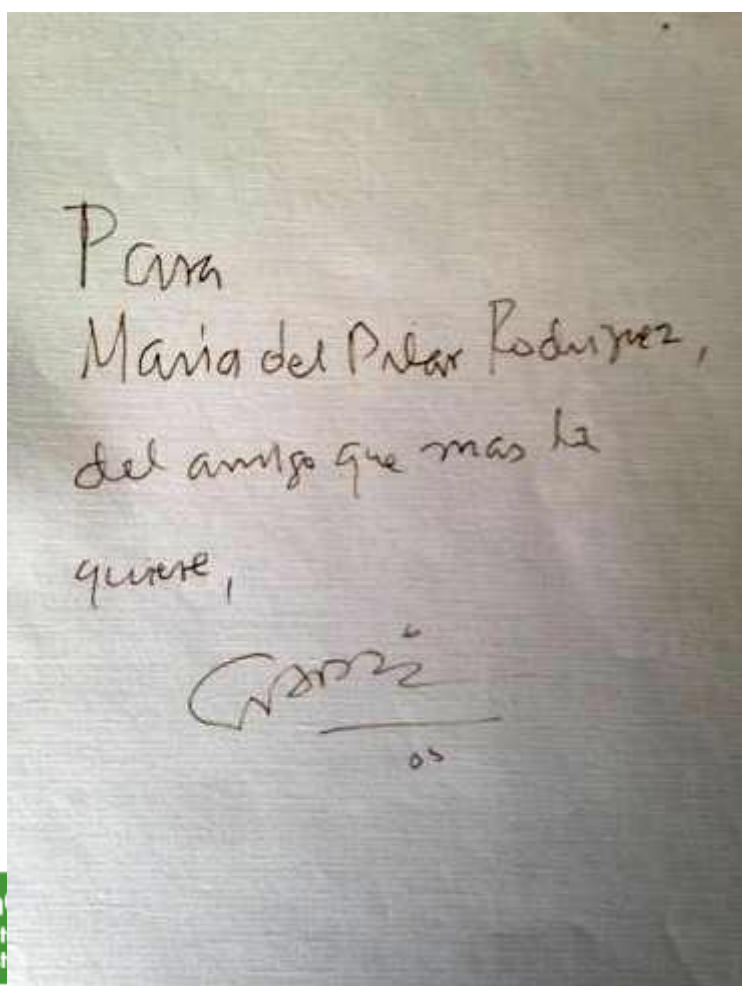 Para
Maria del Pilar Rodriguez,
del amigo que mas la
quiere,
05